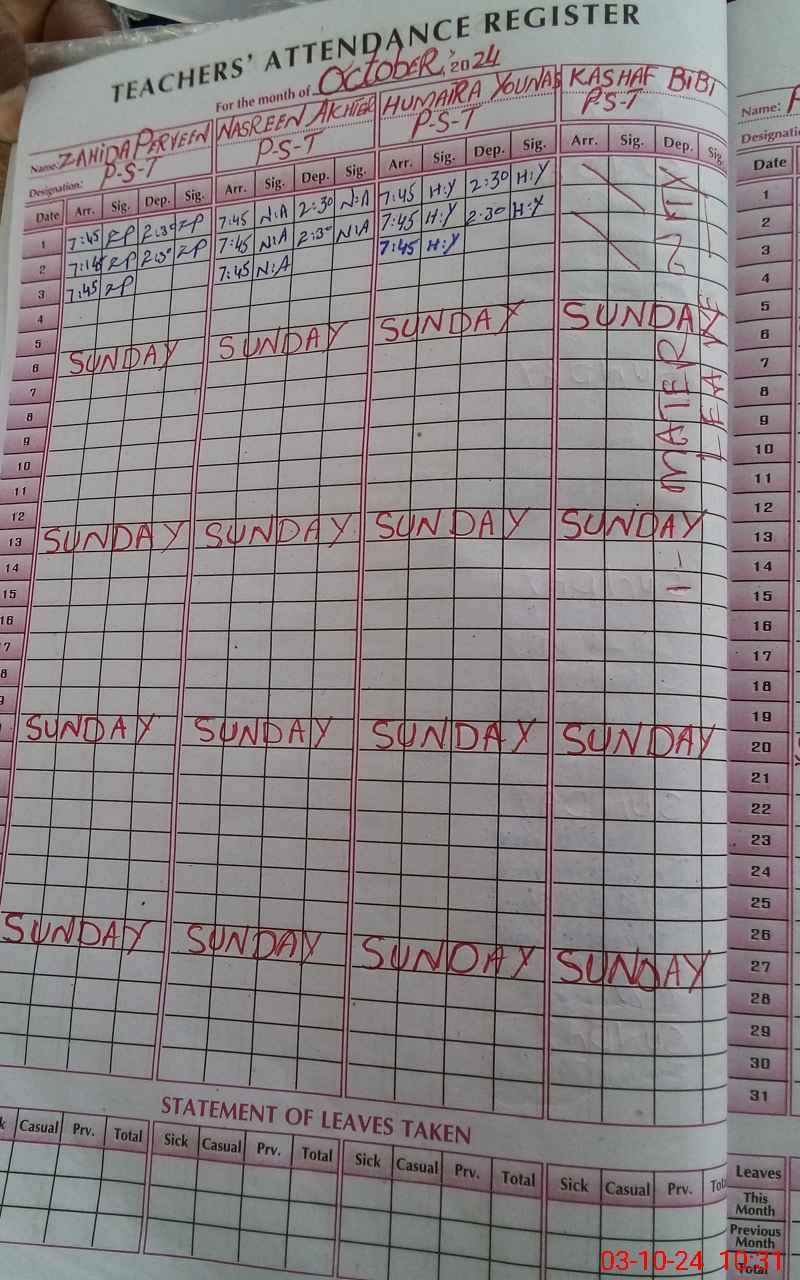 TEACHERS' ATTENDANCE REGISTER
For the month of OctobER, 2024
Name: ZAHIDA PERVEEN NASREEN AKHTER HUMAIRA YOUNAS KASHAF BIBI
Designation: P-S-T P-S-T P-S-T P-S-T
Date Arr. Sig. Dep. Sig. Arr. Sig. Dep. Sig. Arr. Sig. Dep. Sig. Arr. Sig. Dep. Sig.
1 7:45 ZP 2:30 ZP 7:45 N:A 2:30 N:A 7:45 H:Y 2:30 H:Y
2 7:45 ZP 2:30 ZP 7:45 N:A 2:30 N:A 7:45 H:Y 2:30 H:Y
3 7:45 ZP 7:45 N:A 7:45 H:Y
4
5
6 SUNDAY SUNDAY SUNDAY SUNDAY
7
8
9
10
11
12
13 SUNDAY SUNDAY SUNDAY SUNDAY
14
15
16
7
8
9
SUNDAY SUNDAY SUNDAY SUNDAY
SUNDAY SUNDAY SUNDAY SUNDAY
LEAVE
STATEMENT OF LEAVES TAKEN
k Casual Prv. Total Sick Casual Prv. Total Sick Casual Prv. Total Sick Casual Prv. Tot
Name:
Designati
Date
1
2
3
4
5
6
7
8
9
10
11
12
13
14
15
16
17
18
19
20
21
22
23
24
25
26
27
28
29
30
31
Leaves
This
Month
Previous
Month
Total
03-10-24 10:31